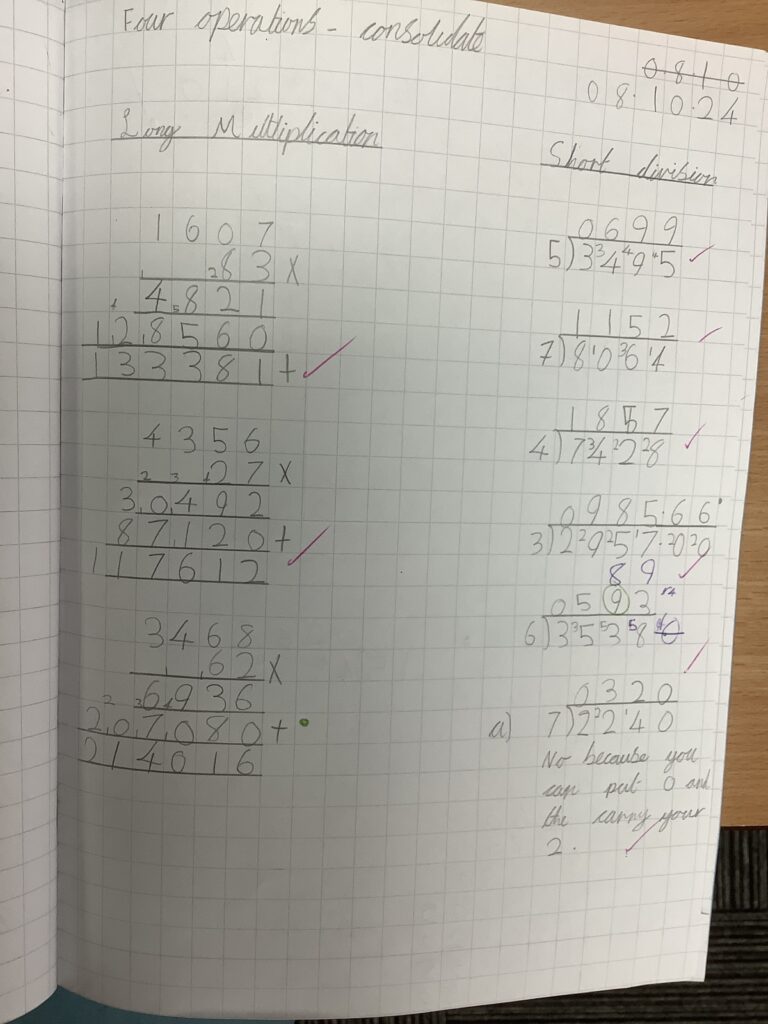 Four operations - consolidate
0 8 1 0
08.10.24
Long Multiplication
1 6 0 7
8 3 X
4 8 2 1
1 2 8 5 6 0
1 3 3 3 8 1 +
4 3 5 6
2 7 X
3 0 4 9 2
8 7 1 2 0 +
1 1 7 6 1 2
3 4 6 8
6 2 X
6 9 3 6
2 0 7 0 8 0 +
2 1 4 0 1 6
Short division
0 6 9 9
5)3 ³4 ⁴9 ⁴5
1 1 5 2
7)8 ¹0 ³6 ¹4
1 8 5 7
4)7 ³4 ²2 ²8
0 9 8 5 . 6 6
3)2 ²9 ²5 ¹7 . ²0 ²0
8 9
0 5 9 3
6)3 ³5 ⁵3 ⁵8
0 3 2 0
a) 7)2 ²2 ¹4 0
No because you
can put 0 and
the carry your
2.